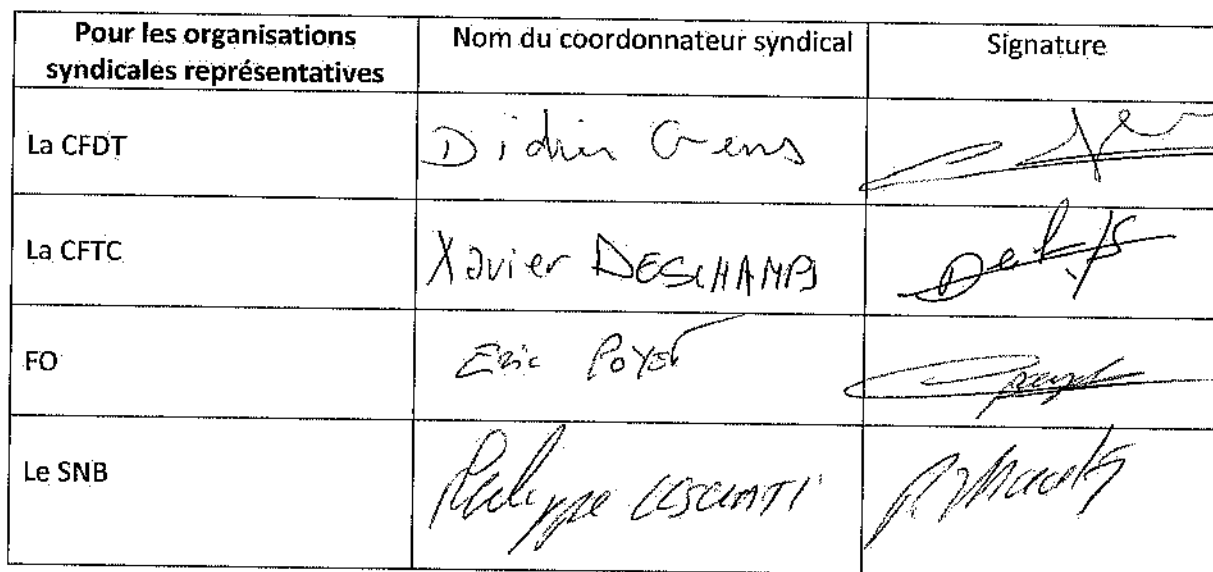 Pour les organisations
syndicales représentatives
Nom du coordonnateur syndical
Signature
La CFDT
Didier Gens
La CFTC
Xavier DESCHAMPS
FO
Eric POYET
Le SNB
Philippe